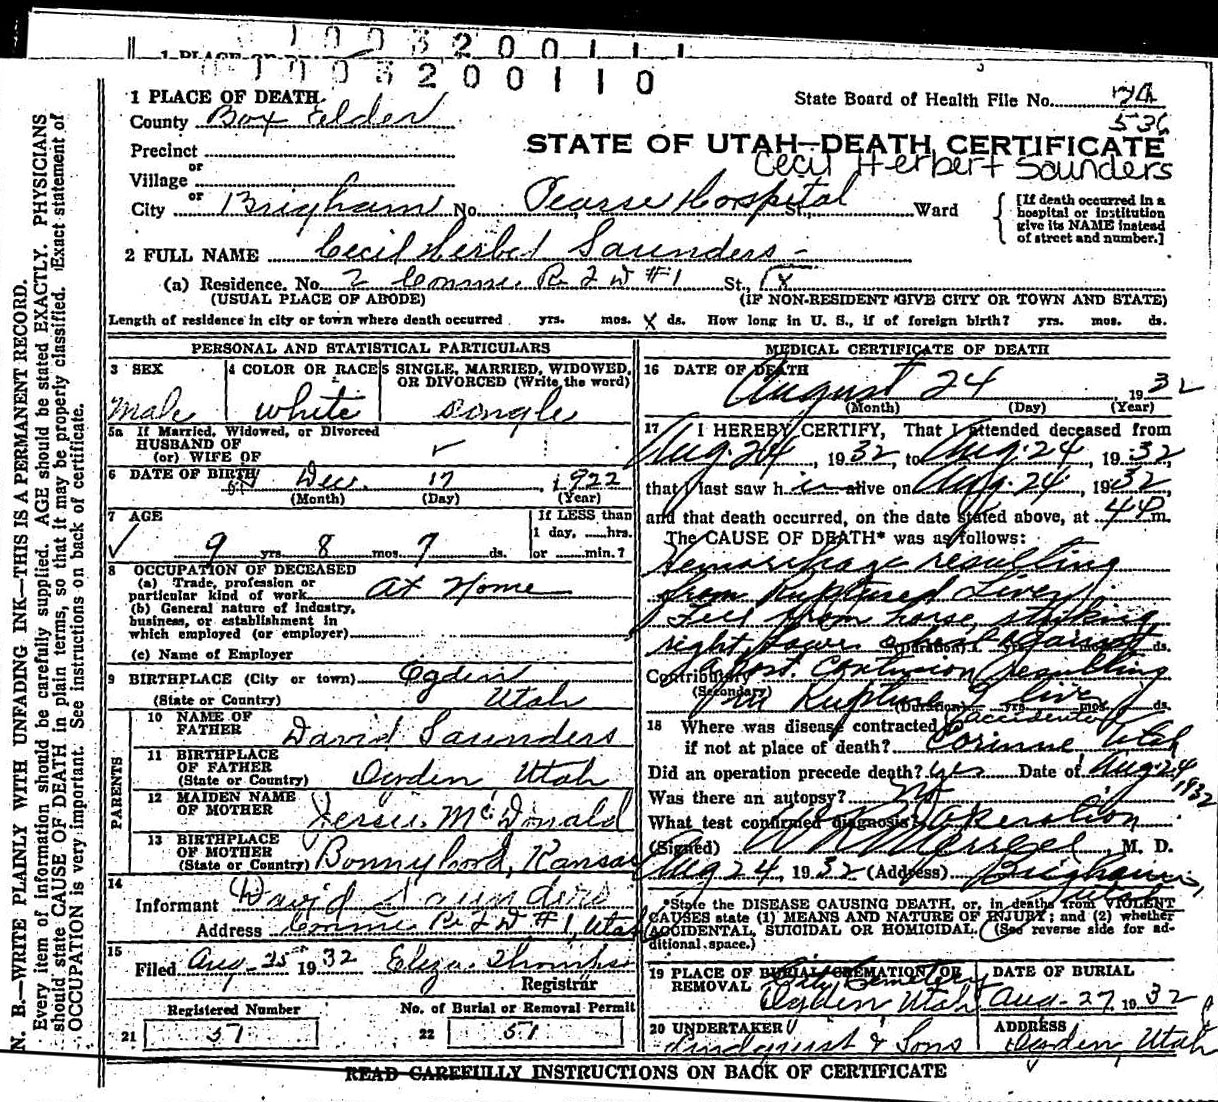 1 0 0 3 2 0 0 1 1 1
1 PLACE
1 0 0 3 2 0 0 1 1 0
1 PLACE OF DEATH
State Board of Health File No.
536
County Box Elder
STATE OF UTAH—DEATH CERTIFICATE
Cecil Herbert Saunders
Precinct
or
Village
or
City Brigham No. Pearse Hospital St., Ward
[If death occurred in a hospital or institution give its NAME instead of street and number.]
2 FULL NAME Cecil Herbert Saunders -
(a) Residence. No. 2 Corinne R. F D #1 St., X
(USUAL PLACE OF ABODE) (IF NON-RESIDENT GIVE CITY OR TOWN AND STATE)
Length of residence in city or town where death occurred yrs. mos. X ds. How long in U. S., if of foreign birth? yrs. mos. ds.
PERSONAL AND STATISTICAL PARTICULARS
3 SEX
Male
4 COLOR OR RACE
white
5 SINGLE, MARRIED, WIDOWED, OR DIVORCED (Write the word)
single
5a If Married, Widowed, or Divorced
HUSBAND OF
(or) WIFE OF
6 DATE OF BIRTH Dec. 17, 1922
(Month) (Day) (Year)
7 AGE
9 yrs. 8 mos. 7 ds.
If LESS than
1 day, hrs.
or min.?
8 OCCUPATION OF DECEASED
(a) Trade, profession or
particular kind of work At Home
(b) General nature of industry,
business, or establishment in
which employed (or employer)
(c) Name of Employer
9 BIRTHPLACE (City or town) Ogden
(State or Country) Utah
PARENTS
10 NAME OF FATHER David Saunders
11 BIRTHPLACE OF FATHER (State or Country) Ogden Utah
12 MAIDEN NAME OF MOTHER Jessie McDonald
13 BIRTHPLACE OF MOTHER (State or Country) Kansas
14
Informant David Saunders
Address Corinne R F D #1, Utah
15
Filed Aug-25 1932 Eliza
Registrar
Registered Number
21 51
No. of Burial or Removal Permit
22 51
MEDICAL CERTIFICATE OF DEATH
16 DATE OF DEATH
August 24, 1932
(Month) (Day) (Year)
17 I HEREBY CERTIFY, That I attended deceased from
Aug. 24, 1932, to Aug. 24, 1932,
that I last saw him alive on Aug. 24, 1932,
and that death occurred, on the date stated above, at 4 P m.
The CAUSE OF DEATH* was as follows:
Hemorrhage resulting
from Ruptured Liver
Fell from horse, striking
right lower chest against
(Duration) yrs. mos. ds.
Contributory a post. Contusion resulting
(Secondary) in Rupture of liver
(Duration) yrs. mos. ds.
Accidental
18 Where was disease contracted
if not at place of death? Corinne Utah
Did an operation precede death? Yes Date of Aug. 24 1932
Was there an autopsy? No
What test confirmed diagnosis? Operation
(Signed) M. D.
Aug 24, 1932 (Address) Brigham, Utah
*State the DISEASE CAUSING DEATH, or, in deaths from VIOLENT
CAUSES state (1) MEANS AND NATURE OF INJURY; and (2) whether
ACCIDENTAL, SUICIDAL OR HOMICIDAL. (See reverse side for ad-
ditional space.)
19 PLACE OF BURIAL CREMATION OR REMOVAL
City Cemetery
Ogden Utah
DATE OF BURIAL
Aug-27, 1932
20 UNDERTAKER
Lindquist & Sons
ADDRESS
Ogden, Utah
READ CAREFULLY INSTRUCTIONS ON BACK OF CERTIFICATE
N. B.—WRITE PLAINLY WITH UNFADING INK—THIS IS A PERMANENT RECORD.
Every item of information should be carefully supplied. AGE should be stated EXACTLY. PHYSICIANS
should state CAUSE OF DEATH in plain terms, so that it may be properly classified. Exact statement of
OCCUPATION is very important. See instructions on back of certificate.